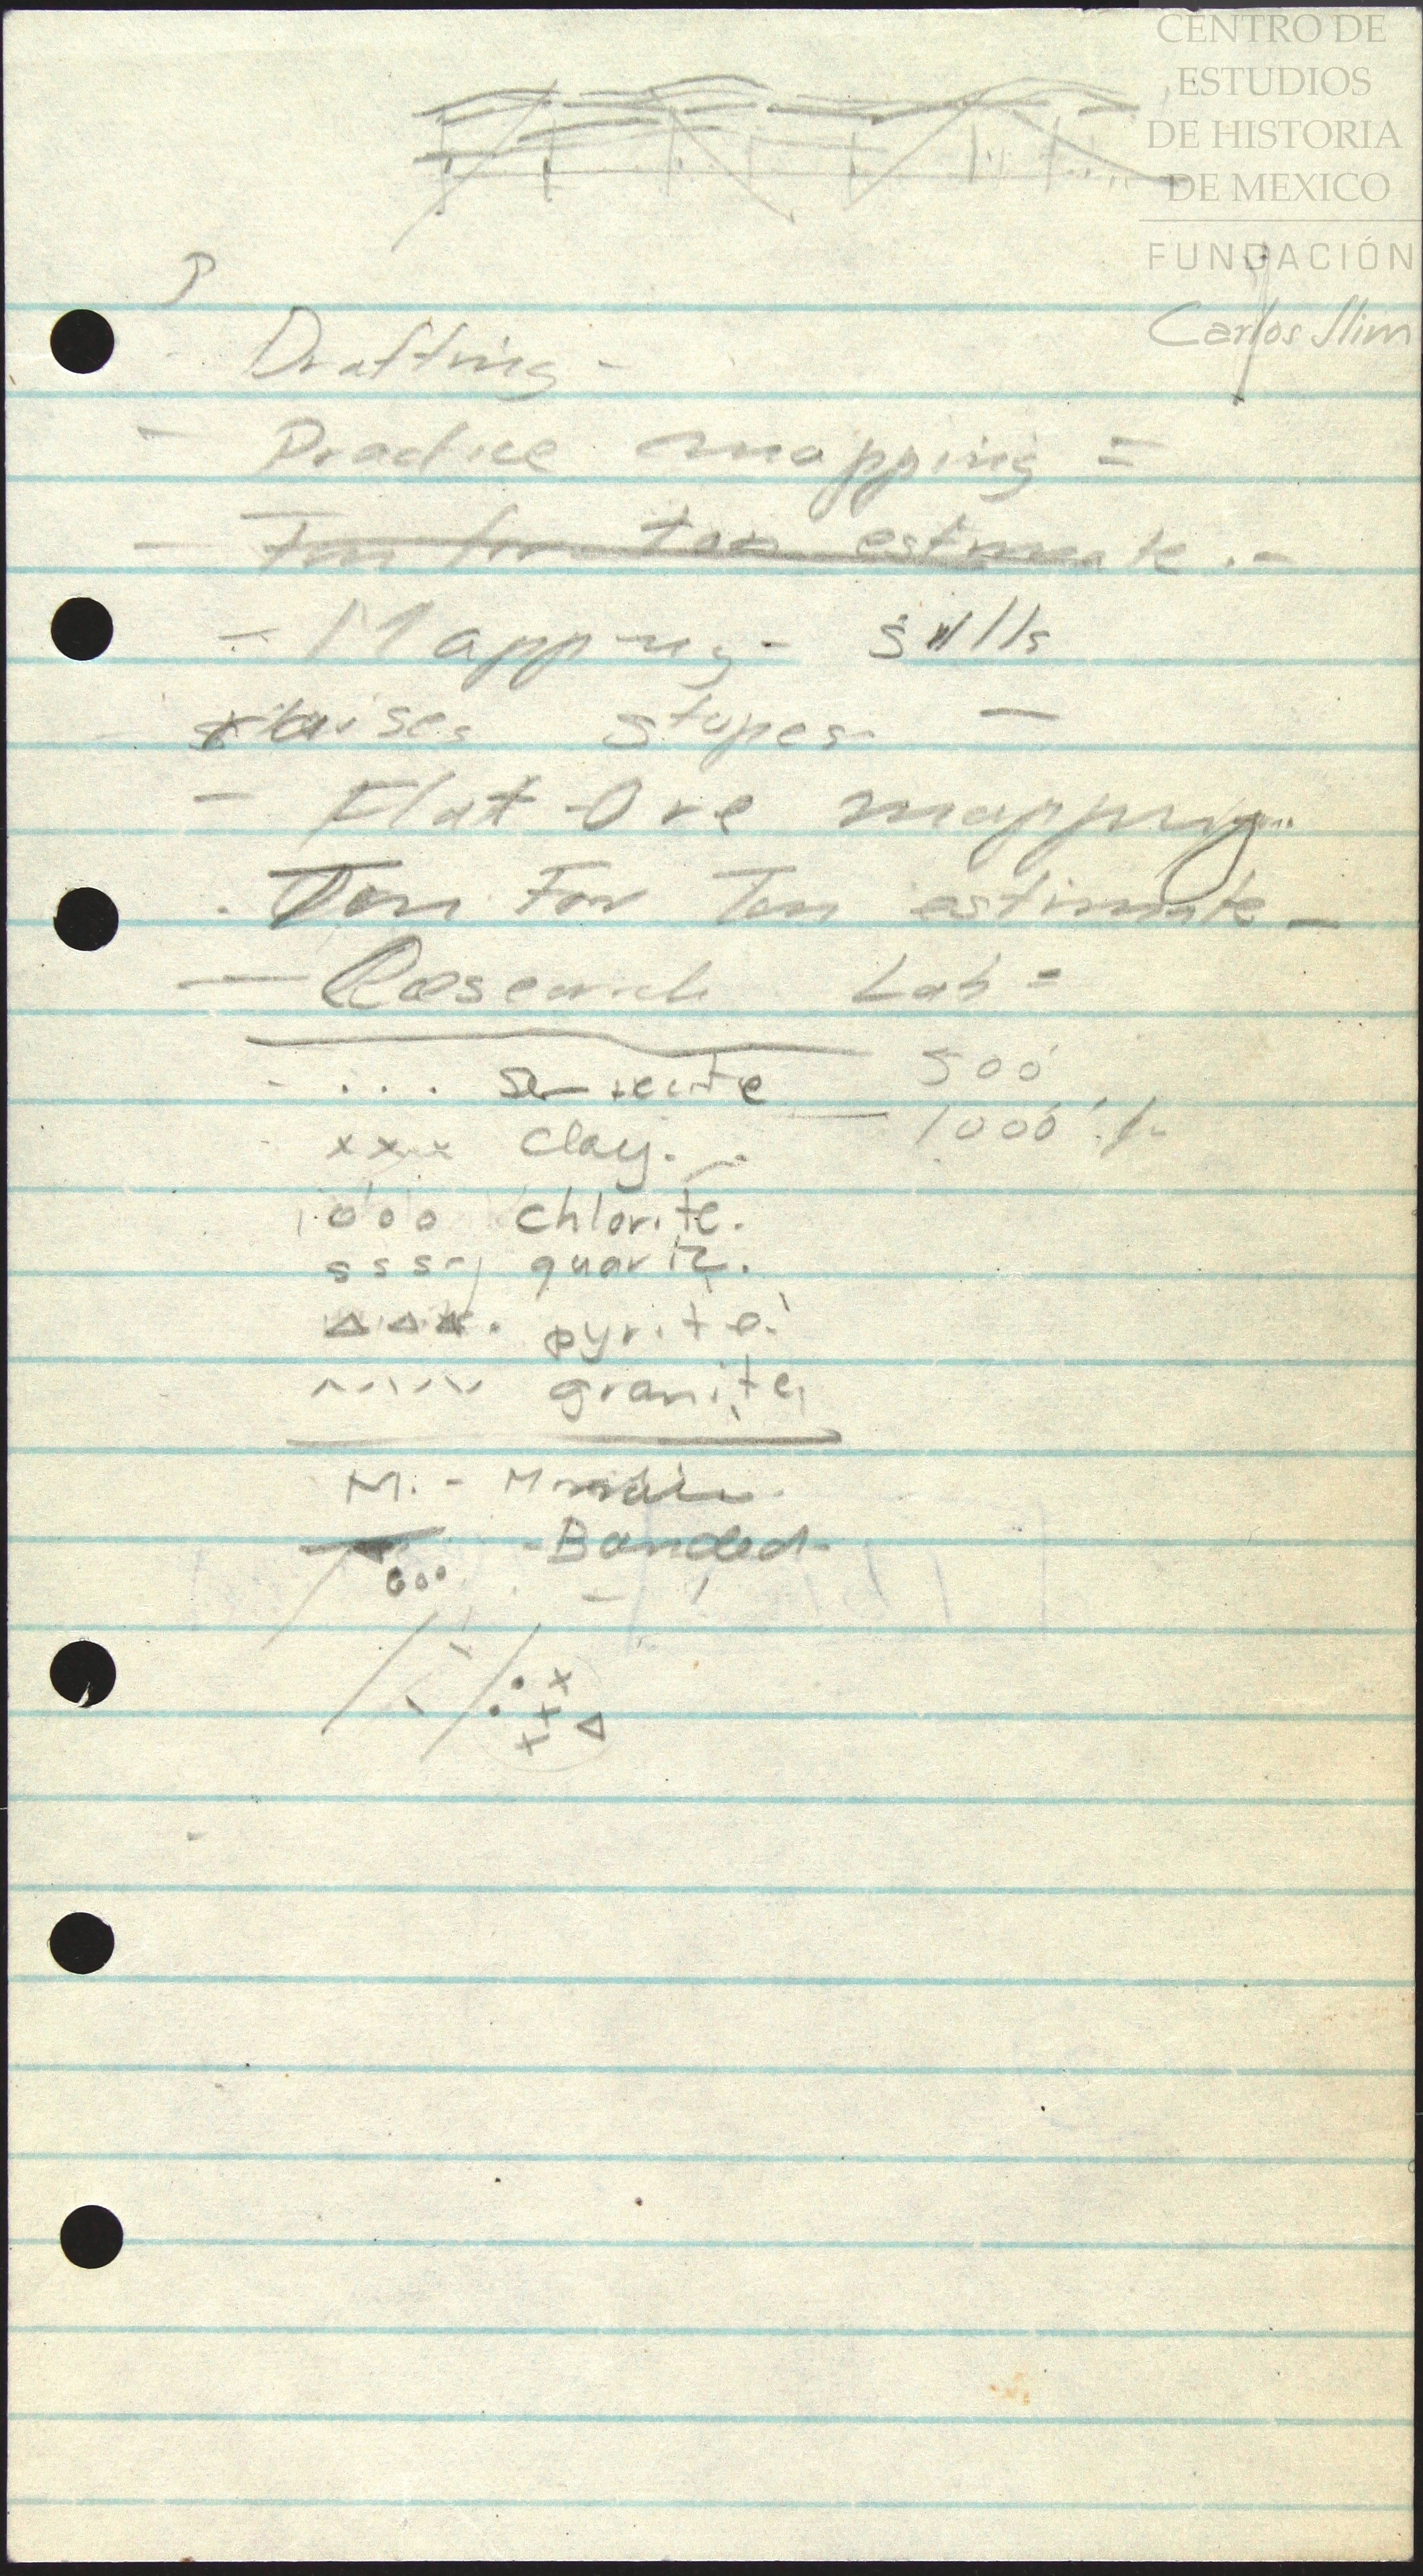 CENTRO DE
ESTUDIOS
DE HISTORIA
DE MEXICO
FUNDACIÓN
Carlos Slim
- Drafting -
- Practice mapping =
- Ton for ton estimate . -
- Mapping - sills
- raises stopes -
- Flat Ore mapping
. Ton For Ton estimate -
- Research Lab =
- . . . sericite 500'
xxx clay. - 1000'
ooo chlorite.
sss - quartz.
△△△. pyrite.
granite
M. -
- Banded -